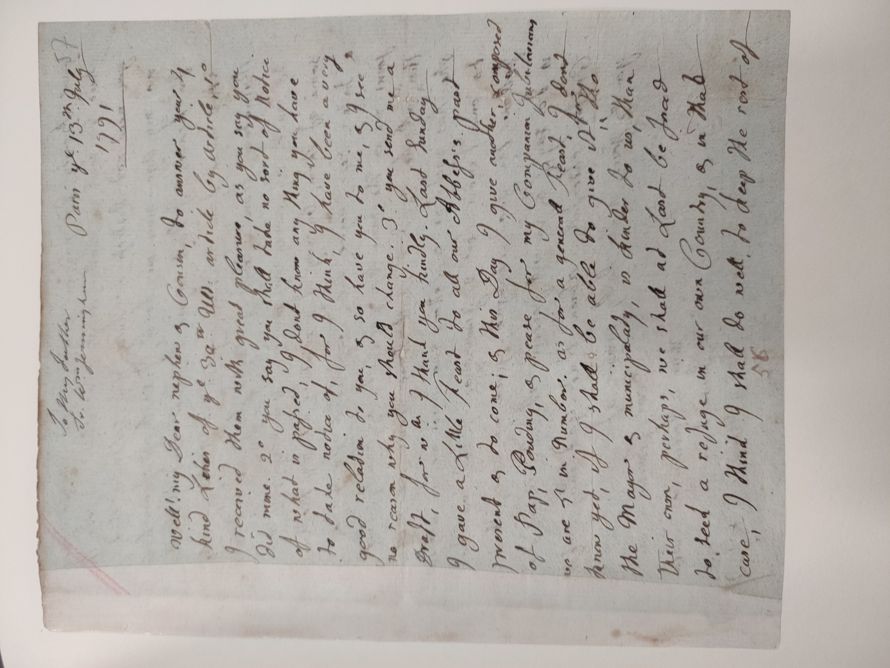 To My father
Sr. Wm Jerningham
57
Paris ye. 13th July
1791
Well! my Dear nephew & Cousin, to answer your 4
kind Letters of ye. 30th Ult. article by article, 1°
I received them with great pleasure, as you say you
did mine. 2° you say you shall take no sort of notice
of what is passed, I dont know any thing you have
to take notice of, for I think, I have been a very
good relation to you, & so have you to me, & I see
no reason why you should change. 3° you send me a
Draft, for wch I thank you kindly. Last Sunday
I gave a Little Feast to all our Abbess's past
present & to come; & this Day I give another, composed
of Pap, Pouding, & pease for my Companion Jubilarians
we are in Number. as for a general Feast, I dont
know yet, if I shall be able to give it, for, tho
the Mayor & municipality, is kinder to us, than
their own, perhaps, we shall at Last be forced
to seek a refuge in our own Country, & in that
case, I think I shall do well, to keep the rest of
58